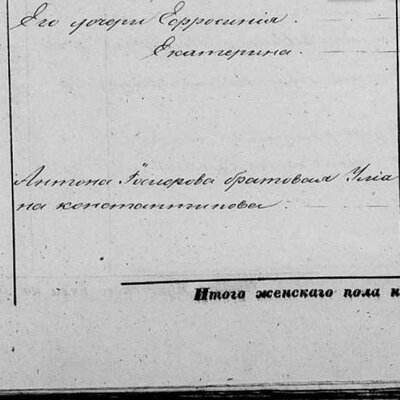 Его дочери Ефросинія.
Екатерина.
Антона братовая Уліа
на константинова.
Итого женскаго пола